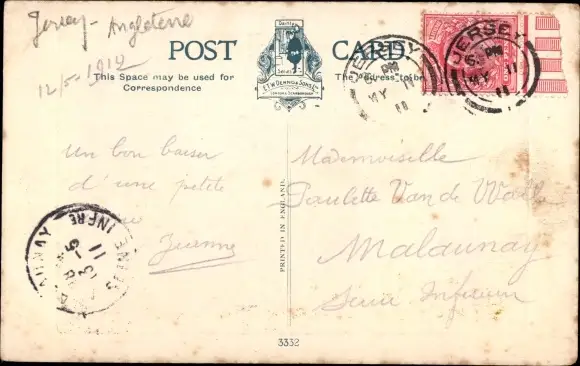 Jersey - Angleterre
12/5-1912
POST CARD
Dainty
Series
E.T.W. DENNIS & SONS LTD
LONDON & SCARBOROUGH
This Space may be used for
Correspondence
The Address to be
JERSEY
PM
MY 11
11
JERSEY
PM
MY 11
11
Un bon baiser
d'une petite
Jeanne
MALAUNAY
SEINE INFRE
13 -5
11
PRINTED IN ENGLAND.
Mademoiselle
Paulette Van de Walle
Malaunay
Seine Inférieure
3332